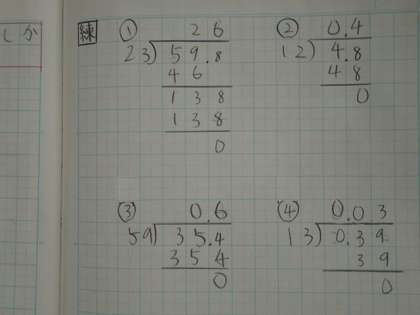 しか
練
① 2 6
23)59.8
46
138
138
0
② 0.4
12)4.8
4 8
0
③ 0.6
59)35.4
35 4
0
④ 0.03
13)0.39
39
0